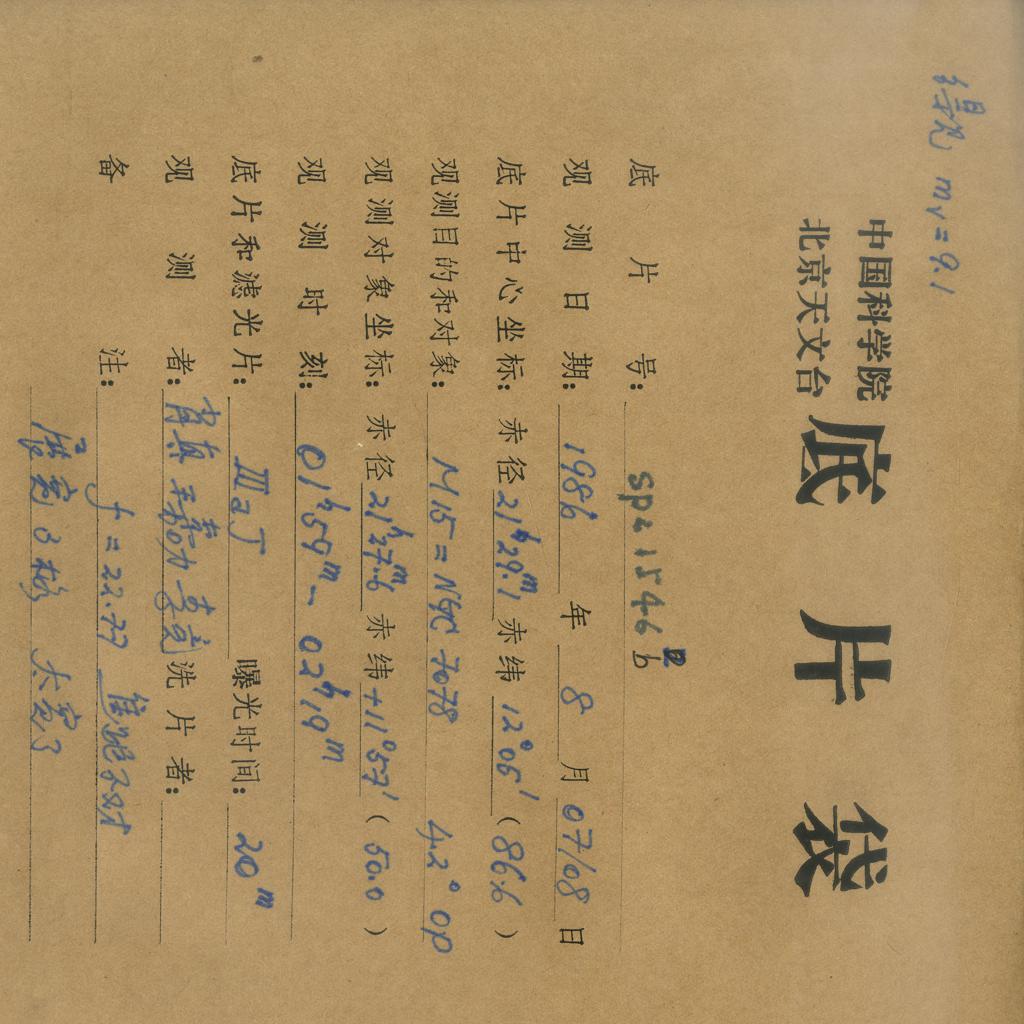 mv = 9.1
中国科学院
北京天文台 底片袋
底片号: sp21546b
观测日期: 1986年8月07/08日
底片中心坐标: 赤径 21h29.1m 赤纬 12°06′ (86.6)
观测目的和对象: M15 = NGC 7078 4.2° OP
观测对象坐标: 赤径 21h27.6m 赤纬 +11°57′ (50.0)
观测时刻: 01h59m~02h19m
底片和滤光片: IIIaJ 曝光时间: 20m
观测者: 洗片者:
备注: f = 22.77